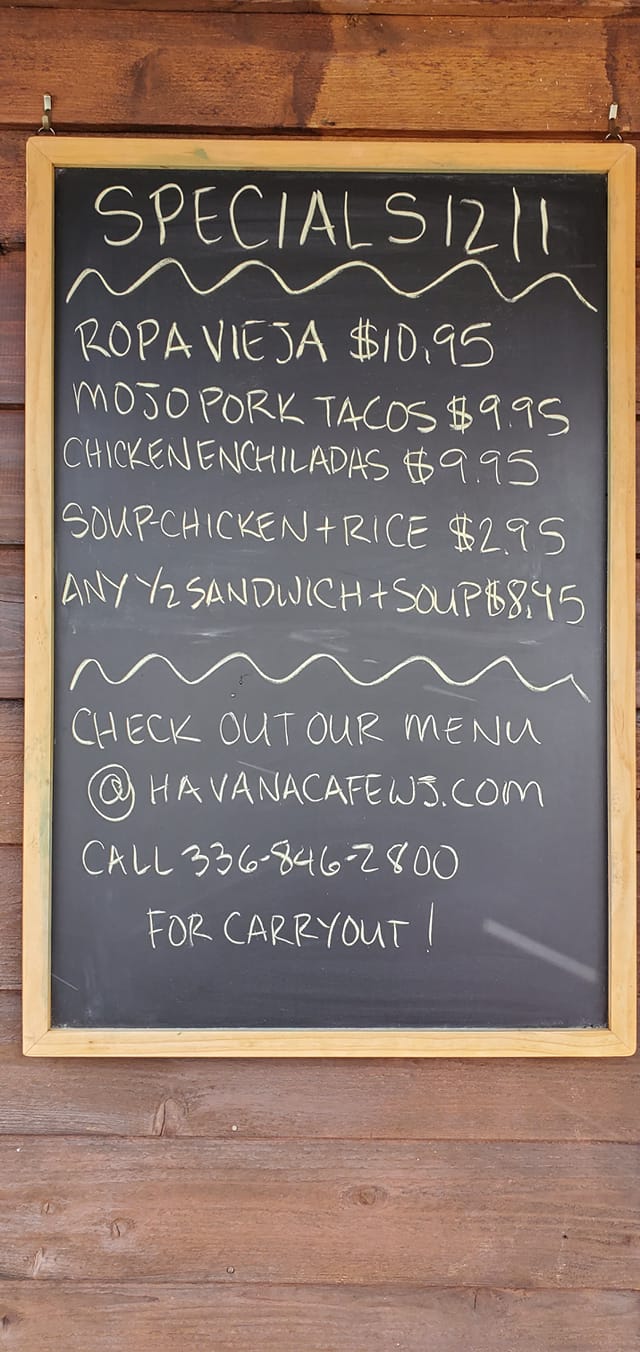 SPECIALS 12/1
ROPA VIEJA $10.95
MOJO PORK TACOS $9.95
CHICKEN ENCHILADAS $9.95
SOUP-CHICKEN + RICE $2.95
ANY 1/2 SANDWICH + SOUP $8.95
CHECK OUT OUR MENU
@ HAVANACAFEWS.COM
CALL 336-846-2800
FOR CARRYOUT!